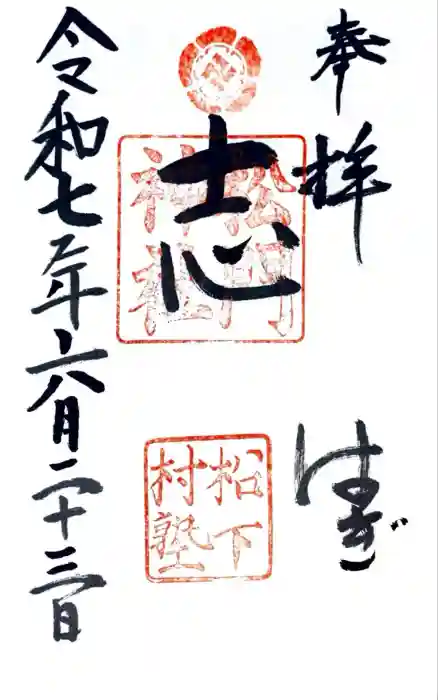 奉拝
はぎ
志
松門
神社
松下
村塾
令和七年六月二十三日